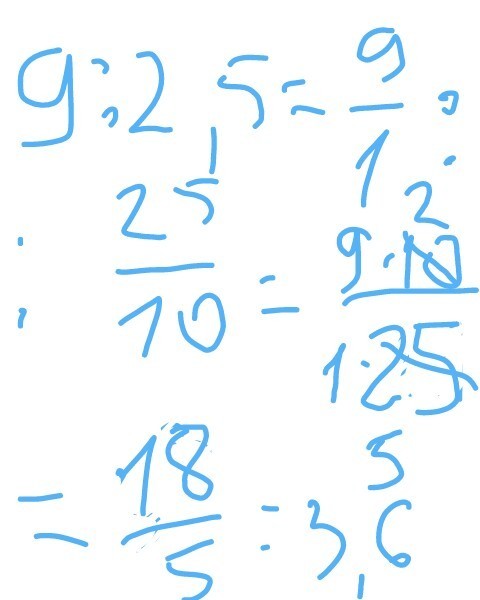 9 : 2,5 = 9/1 :
: 25/10 = 9·10/1·25 (2, 5)
= 18/5 = 3,6